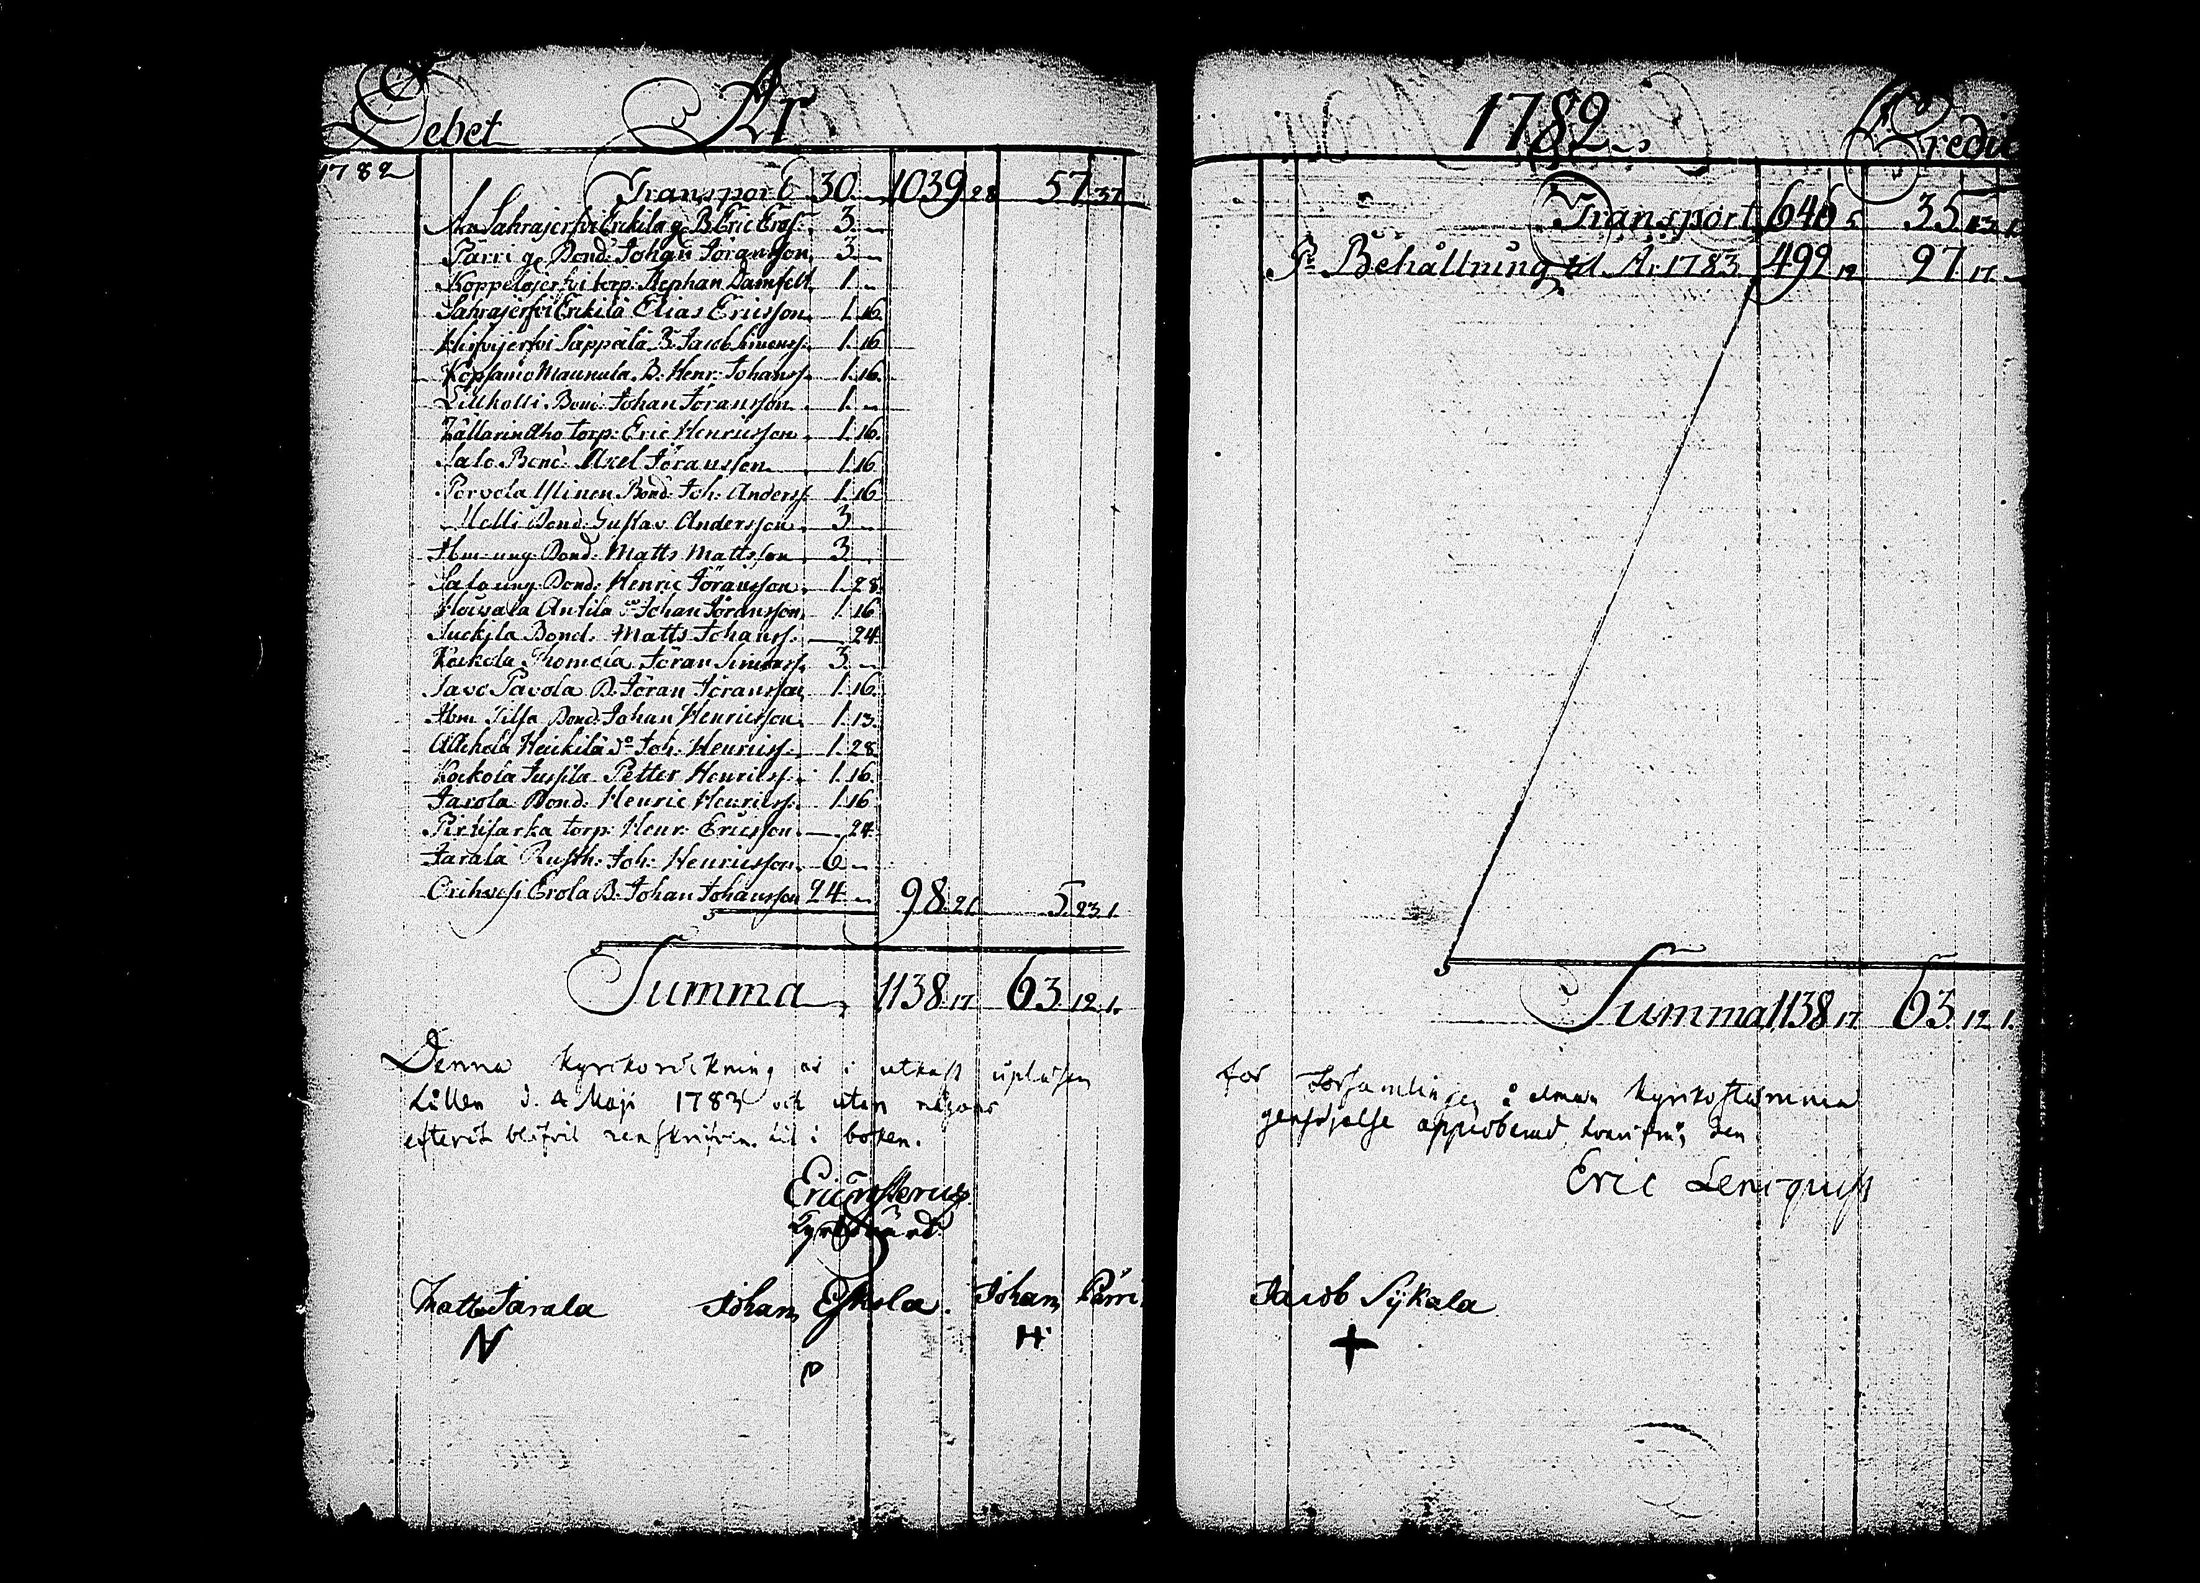 Debet År
1782
Transport 30. — 1039. 28 57. 37
Sahrajerfvi Erikila B. Eric Ersf. 3. —
Pärri Bond. Johan Göransson 3 —
Koppelojerfvi torp. Stephan Damfelt 1 —
Sahrajerfvi Erikila Elias Ericsson 1. 16.
Hirfvijerfvi Säppälä B. Jacob Simonss. 1. 16
Köpsamo Maunula B. Henr. Johanss. 1. 16.
Bond. Johan Göransson 1. —
torp. Eric Henricsson 1. 16.
Salo Bond. Axel Göransson 1. 16
Bond. Joh. Anderss. 1. 16
Bond. Gustav Andersson 3 —
Ibm ung. Bond. Matts Mattsson 3
Salo ung. Bond. Henric Göransson 1. 28.
Antila d:o Johan Göransson 1. 16
Suckila Bond. Matts Johanss. — 24.
Thomola Göran Simonss. 3 —
Savo Pavola B. Göran Göransson 1. 16.
Ibm Bond. Johan Henricsson 1. 13.
Heickilä d:o Joh. Henricss. 1. 28
Kockola Jussila Petter Henricss. 1. 16.
Jarola Bond. Henric Henricss. 1. 16
torp. Henr. Ericsson — 24.
Jarala Rusth. Joh. Henricsson 6 —
Orihvesi Erola B. Johan Johansson 24 — 98. 21 5. 23 1.
Summa 1138. 17 63. 12. 1.
Denna kyrkoräkning är i utkast upläsen
d. 4 Maji 1783 och utan någons
efteråt blifvit renskrifven hit i boken.
Eric
Kyrkovärd
Matts Jarala Johan Eskola. Johan Pärri
N H
1782. Credit
Transport 646 5. 35 43.
Pr Behållning til År 1783. 492 12 27 17 —
Summa 1138 17 63. 12 1.
för Församlingen å allmän kyrkostämma
gensäjelse approberad, den
Eric Lencquist
Jacob Sÿkala
+